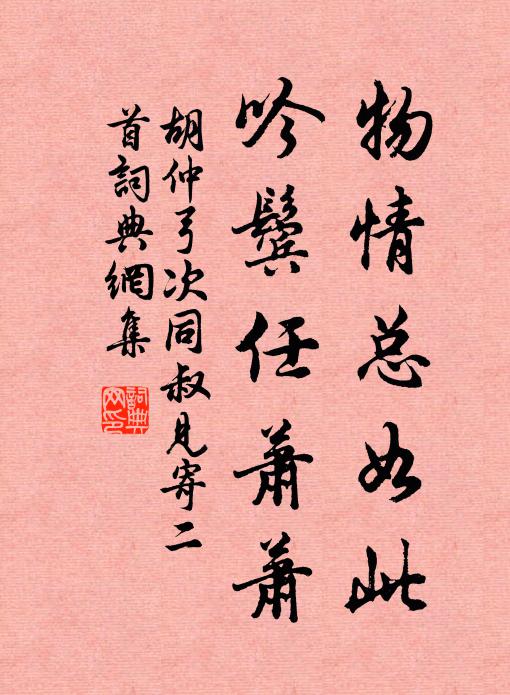 物情总如此
吟鬓任萧萧
胡仲弓次同叔見寄二
首詞典網集
詞典
网印